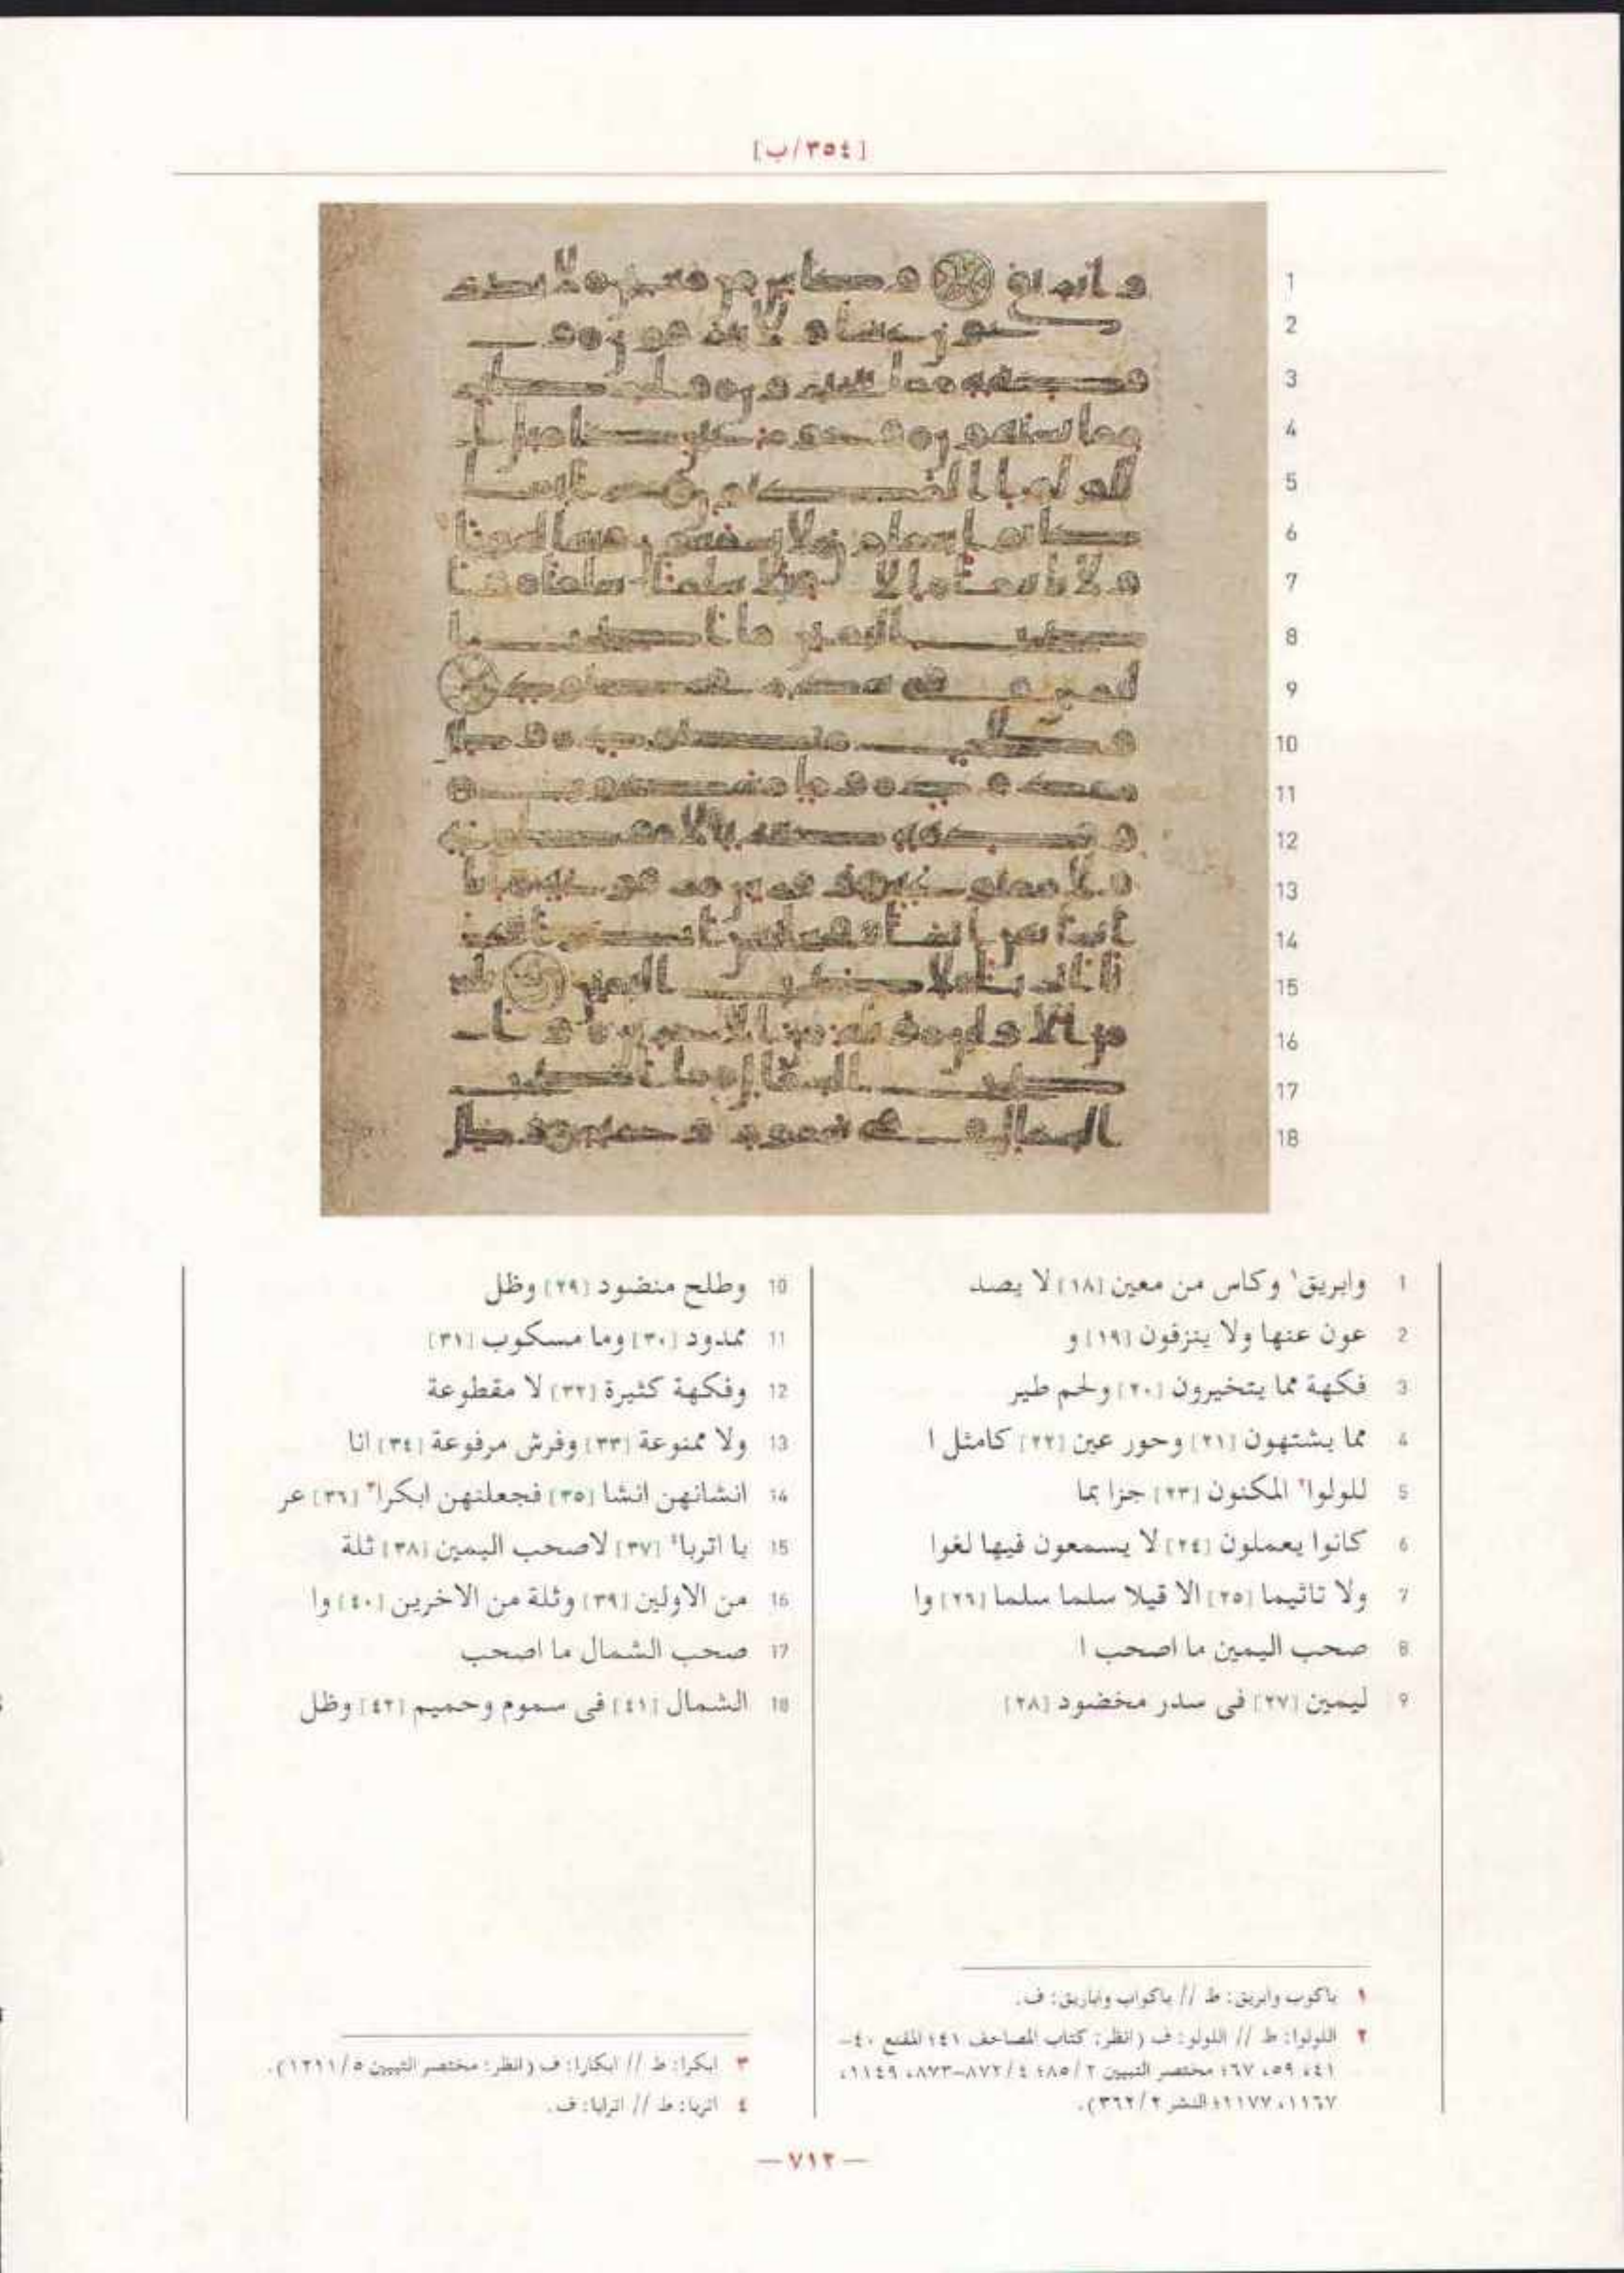 [٣٥٤/ب]
1
2
3
4
5
6
7
8
9
10
11
12
13
14
15
16
17
18
1 وابريق١ وكاس من معين [١٨] لا يصد
2 عون عنها ولا ينزفون [١٩] و
3 فكهة مما يتخيرون [٢٠] ولحم طير
4 مما يشتهون [٢١] وحور عين [٢٢] كامثل ا
5 للولوا٢ المكنون [٢٣] جزا بما
6 كانوا يعملون [٢٤] لا يسمعون فيها لغوا
7 ولا تاثيما [٢٥] الا قيلا سلما سلما [٢٦] وا
8 صحب اليمين ما اصحب ا
9 ليمين [٢٧] فى سدر مخضود [٢٨]
10 وطلح منضود [٢٩] وظل
11 ممدود [٣٠] وما مسكوب [٣١]
12 وفكهة كثيرة [٣٢] لا مقطوعة
13 ولا ممنوعة [٣٣] وفرش مرفوعة [٣٤] انا
14 انشانهن انشا [٣٥] فجعلنهن ابكرا٣ [٣٦] عر
15 با اتربا٤ [٣٧] لاصحب اليمين [٣٨] ثلة
16 من الاولين [٣٩] وثلة من الاخرين [٤٠] وا
17 صحب الشمال ما اصحب
18 الشمال [٤١] فى سموم وحميم [٤٢] وظل
١ باكوب وابريق: ط // باكواب واباريق: ف.
٢ اللولوا: ط // اللولو: ف (انظر: كتاب المصاحف ١٤١؛ المقنع ٤٠–
٤١، ٥٩، ٦٧؛ مختصر التبيين ٢/٨٥؛ ٤/٨٧٢–٨٧٣، ١١٤٩،
١١٦٧، ١١٧٧؛ النشر ٢/٣٦٢).
٣ ابكرا: ط // ابكارا: ف (انظر: مختصر التبيين ٥/١٢١١).
٤ اتربا: ط // اترابا: ف.
— ٧١٢ —